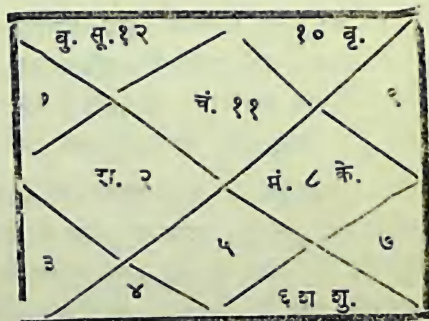 बु. सू. १२
१० वृ.
१
चं. ११
९
रा. २
मं. ८ के.
३
५
७
४
६ श शु.